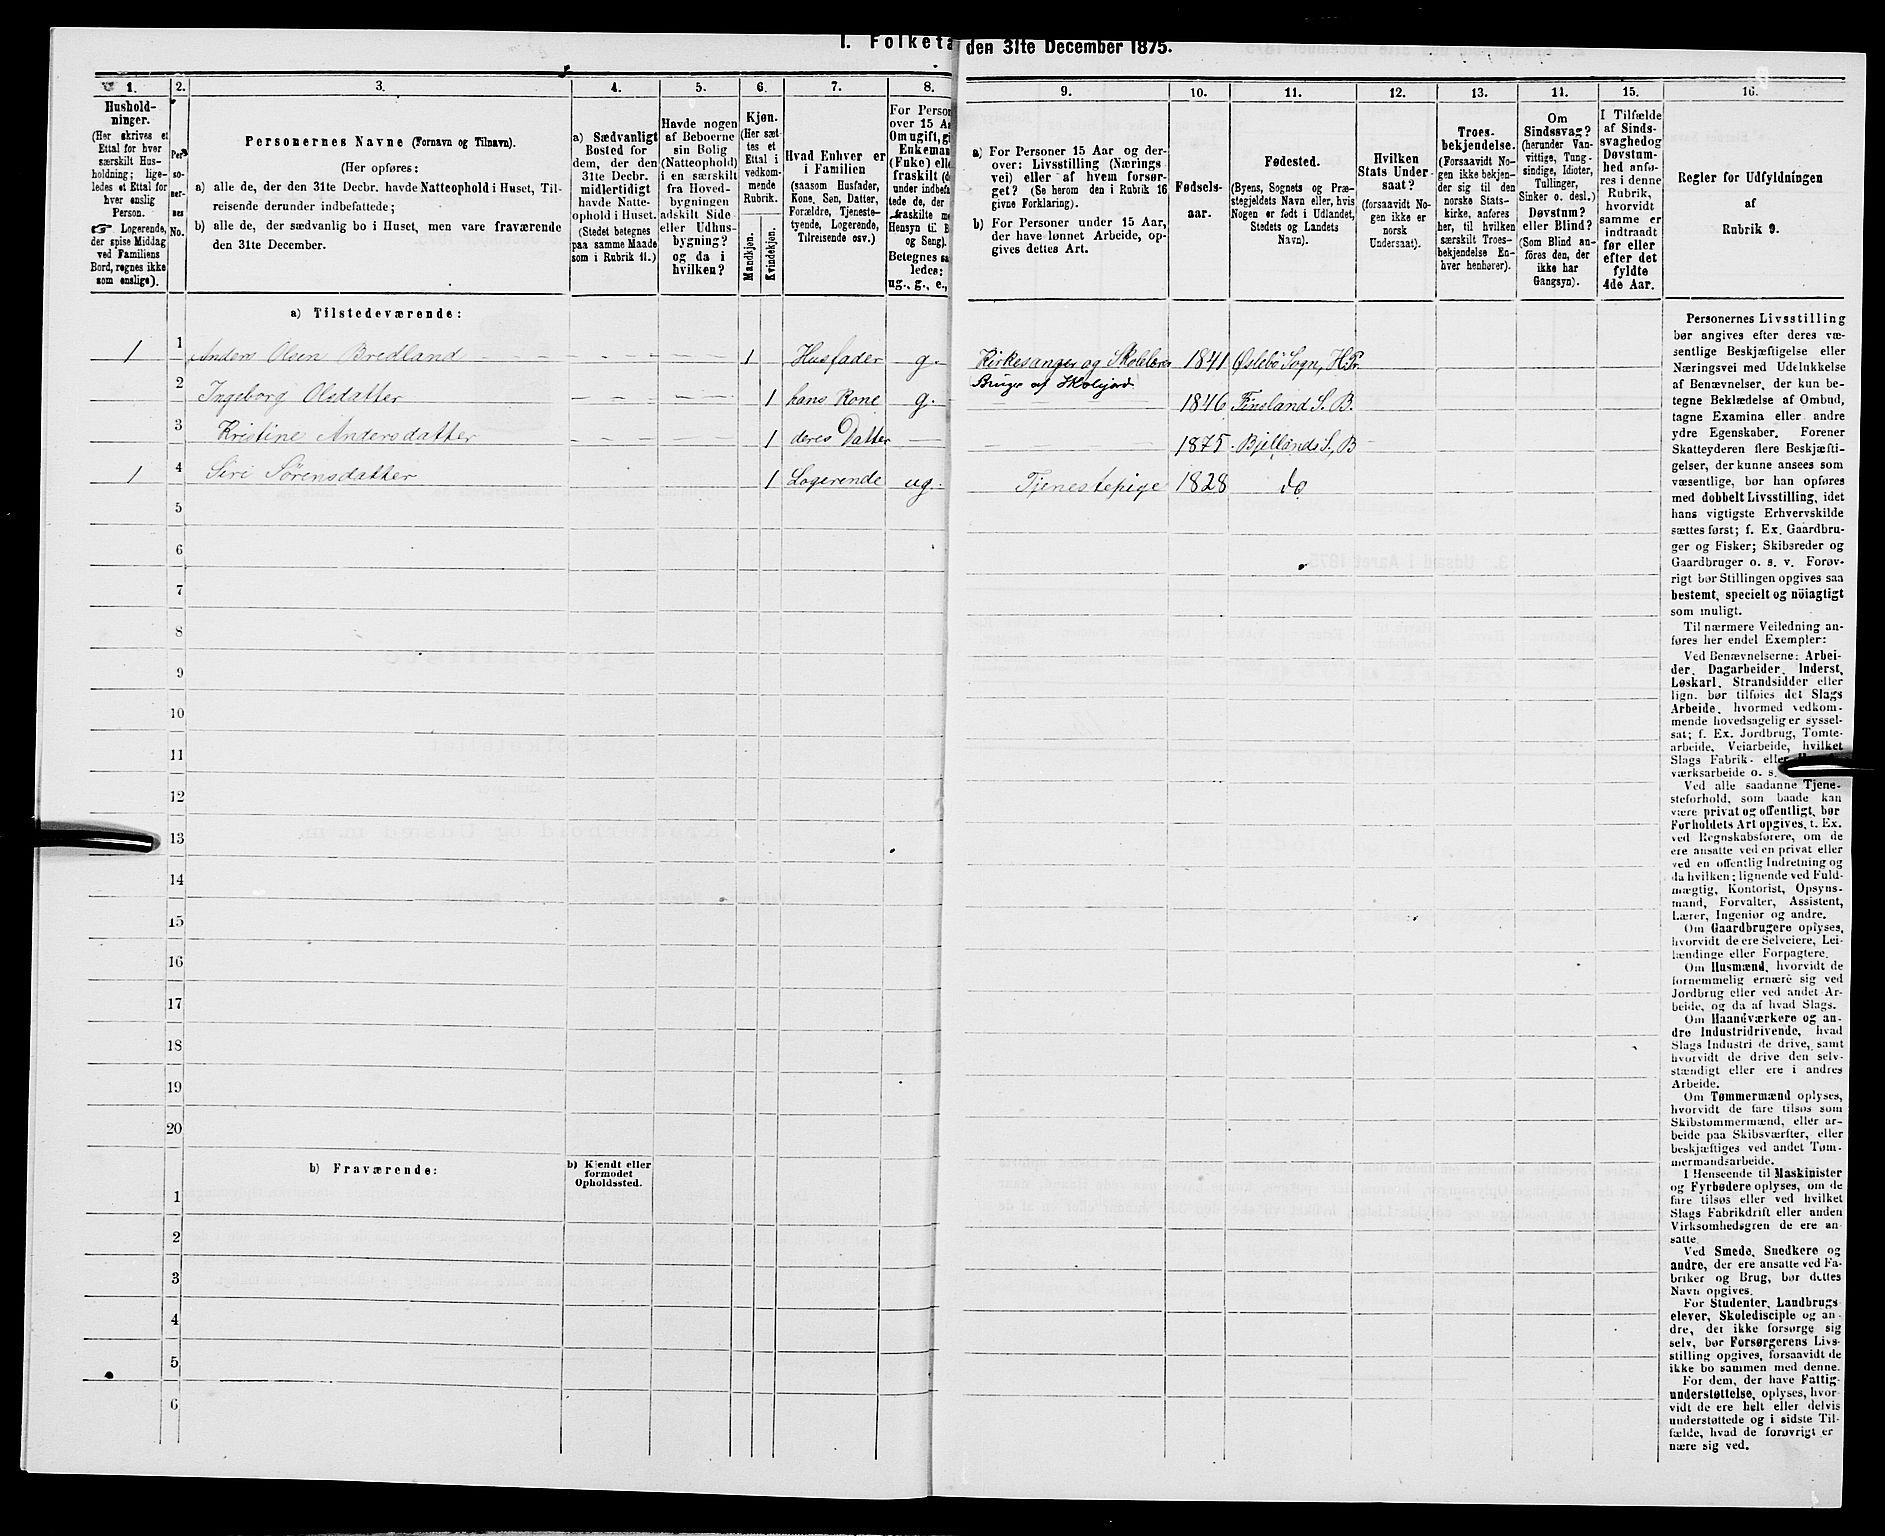 I. Folketa den 31te December 1875.
1. 2. 3. 4. 5. 6. 7. 8. 9. 10. 11. 12. 13. 11. 15. 16.
Hushold-
ninger.
(Her skrives et
Ettal for hver
særskilt Hus-
holdning; lige-
ledes et Ettal for
hver enslig
Person.
Logerende,
der spise Middag
ved Familiens
Bord, regnes ikke
som enslige).
Per-
so-
ner-
nes
No.
Personernes Navne (Fornavn og Tilnavn).
(Her opføres:
a) alle de, der den 31te Decbr. havde Natteophold i Huset, Til-
reisende derunder indbefattede;
b) alle de, der sædvanlig bo i Huset, men vare fraværende
den 31te December.
a) Sædvanligt
Bosted for
dem, der den
31te Decbr.
midlertidigt
havde Natte-
ophold i Huset.
(Stedet betegnes
paa samme Maade
som i Rubrik 11.)
Havde nogen
af Beboerne
sin Bolig
(Natteophold)
i en særskilt
fra Hoved-
bygningen
adskilt Side-
eller Udhus-
bygning?
og da i
hvilken?
Kjøn.
(Her sæt-
tes et
Ettal i
vedkom-
mende
Rubrik.
Mandkjøn.
Kvindekjøn.
Hvad Enhver er
i Familien
(saasom Husfader,
Kone, Søn, Datter,
Forældre, Tjeneste-
tyende, Logerende,
Tilreisende osv.)
For Person
over 15 Aa
Om ugift, gi
Enkeman
(Fuke) elle
fraskilt (d
under indbefa
tede de, der
fraskilte me
Hensyn til B
og Seng).
Betegnes saa
ledes:
ug., g., e.,
a) For Personer 15 Aar og der-
over: Livsstilling (Nærings-
vei) eller af hvem forsør-
get? (Se herom den i Rubrik 16
givne Forklaring).
b) For Personer under 15 Aar,
der have lønnet Arbeide, op-
gives dettes Art.
Fødsels-
aar.
Fødested.
(Byens, Sognets og Præ-
stegjeldets Navn eller, hvis
Nogen er født i Udlandet,
Stedets og Landets
Navn).
Hvilken
Stats Under-
saat?
(forsaavidt No-
gen ikke er
norsk
Undersaat).
Troes-
bekjendelse.
(Forsaavidt No-
gen ikke bekjen-
der sig til den
norske Stats-
kirke, anføres
her, til hvilken
særskilt Troes-
bekjendelse En-
hver henhører).
Om
Sindssvag?
(herunder Van-
vittige, Tung-
sindige, Idioter,
Tullinger,
Sinker o. desl.)
Døvstum?
eller Blind?
(Som Blind an-
føres den, der
ikke har
Gangsyn).
I Tilfælde
af Sinds-
svaghed og
Døvstum-
hed anfø-
res i denne
Rubrik,
hvorvidt
samme er
indtraadt
før eller
efter det
fyldte
4de Aar.
Regler for Udfyldningen
af
Rubrik 9.
a) Tilstedeværende:
1 1 Anders Olsen Bredland 1 Husfader g. Kirkesanger og Skolelærer 1841 Øslebø Sogn, H.Pr.
Bruger af Skolejord
2 Ingeborg Olsdatter 1 hans Kone g. 1846 Finsland S. B.
3 Kristine Andersdatter 1 deres Datter 1875 Bjellands S., B
1 4 Siri Sørensdatter 1 Logerende ug. Tjenestepige 1828 do
5
6
7
8
9
10
11
12
13
14
15
16
17
18
19
20
b) Fraværende:
b) Kjendt eller
formodet
Opholdssted.
1
2
3
4
5
6
Personernes Livsstilling
bør angives efter deres væ-
sentlige Beskjæftigelse eller
Næringsvei med Udelukkelse
af Benævnelser, der kun be-
tegne Beklædelse af Ombud,
tagne Examina eller andre
ydre Egenskaber. Forener
Skatteyderen flere Beskjæfti-
gelser, der kunne ansees som
væsentlige, bør han opføres
med dobbelt Livsstilling, idet
hans vigtigste Erhvervskilde
sættes først; f. Ex. Gaardbru-
ger og Fisker; Skibsreder og
Gaardbruger o. s. v. Forøv-
rigt bør Stillingen opgives saa
bestemt, specielt og nöiagtigt
som muligt.
Til nærmere Veiledning an-
føres her endel Exempler:
Ved Benævnelserne: Arbei-
der, Dagarbeider, Inderst,
Løskarl, Strandsidder eller
lign. bør tilføies det Slags
Arbeide, hvormed vedkom-
mende hovedsagelig er syssel-
sat; f. Ex. Jordbrug, Tomte-
arbeide, Veiarbeide, hvilket
Slags Fabrik- eller
værksarbeide o. s.
Ved alle saadanne Tjene-
steforhold, som baade kan
være privat og offentligt, bør
Forholdets Art opgives, t. Ex.
ved Regnskabsførere, om de
ere ansatte ved en privat eller
ved en offentlig Indretning og
da hvilken; lignende ved Fuld-
mægtig, Kontorist, Opsyns-
mand, Forvalter, Assistent,
Lærer, Ingeniør og andre.
Om Gaardbrugere oplyses,
hvorvidt de ere Selveiere, Lei-
lændinge eller Forpagtere.
Om Husmænd, hvorvidt de
fornemmelig ernære sig ved
Jordbrug eller ved andet Ar-
beide, og da af hvad Slags.
Om Haandværkere og an-
dre Industridrivende, hvad
Slags Industri de drive, samt
hvorvidt de drive den selv-
stændigt eller ere i andres
Arbeide.
Om Tømmermænd oplyses,
hvorvidt de fare tilsøs som
Skibstømmermænd, eller ar-
beide paa Skibsværfter, eller
beskjæftiges ved andet Tøm-
mermandsarbeide.
I Henseende til Maskinister
og Fyrbødere oplyses, om de
fare tilsøs eller ved hvilket
Slags Fabrikdrift eller anden
Virksomhedsgren de ere an-
satte.
Ved Smede, Snedkere og
andre, der ere ansatte ved Fa-
briker og Brug, bør dettes
Navn opgives.
For Studenter, Landbrugs-
elever, Skoledisciple og an-
dre, der ikke forsørge sig
selv, bør Forsørgerens Livs-
stilling opgives, forsaavidt de
ikke bo sammen med denne.
For dem, der have Fattig-
understøttelse, oplyses, hvor-
vidt de ere helt eller delvis
understøttede og i sidste Til-
fælde, hvad de forøvrigt er
nære sig ved.